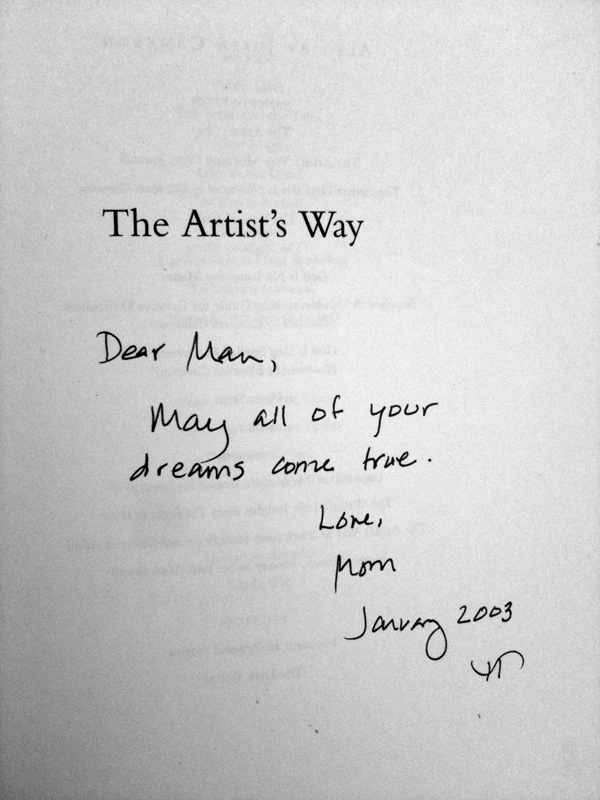 The Artist's Way
Dear Man,
May all of your
dreams come true.
Love,
Mom
January 2003